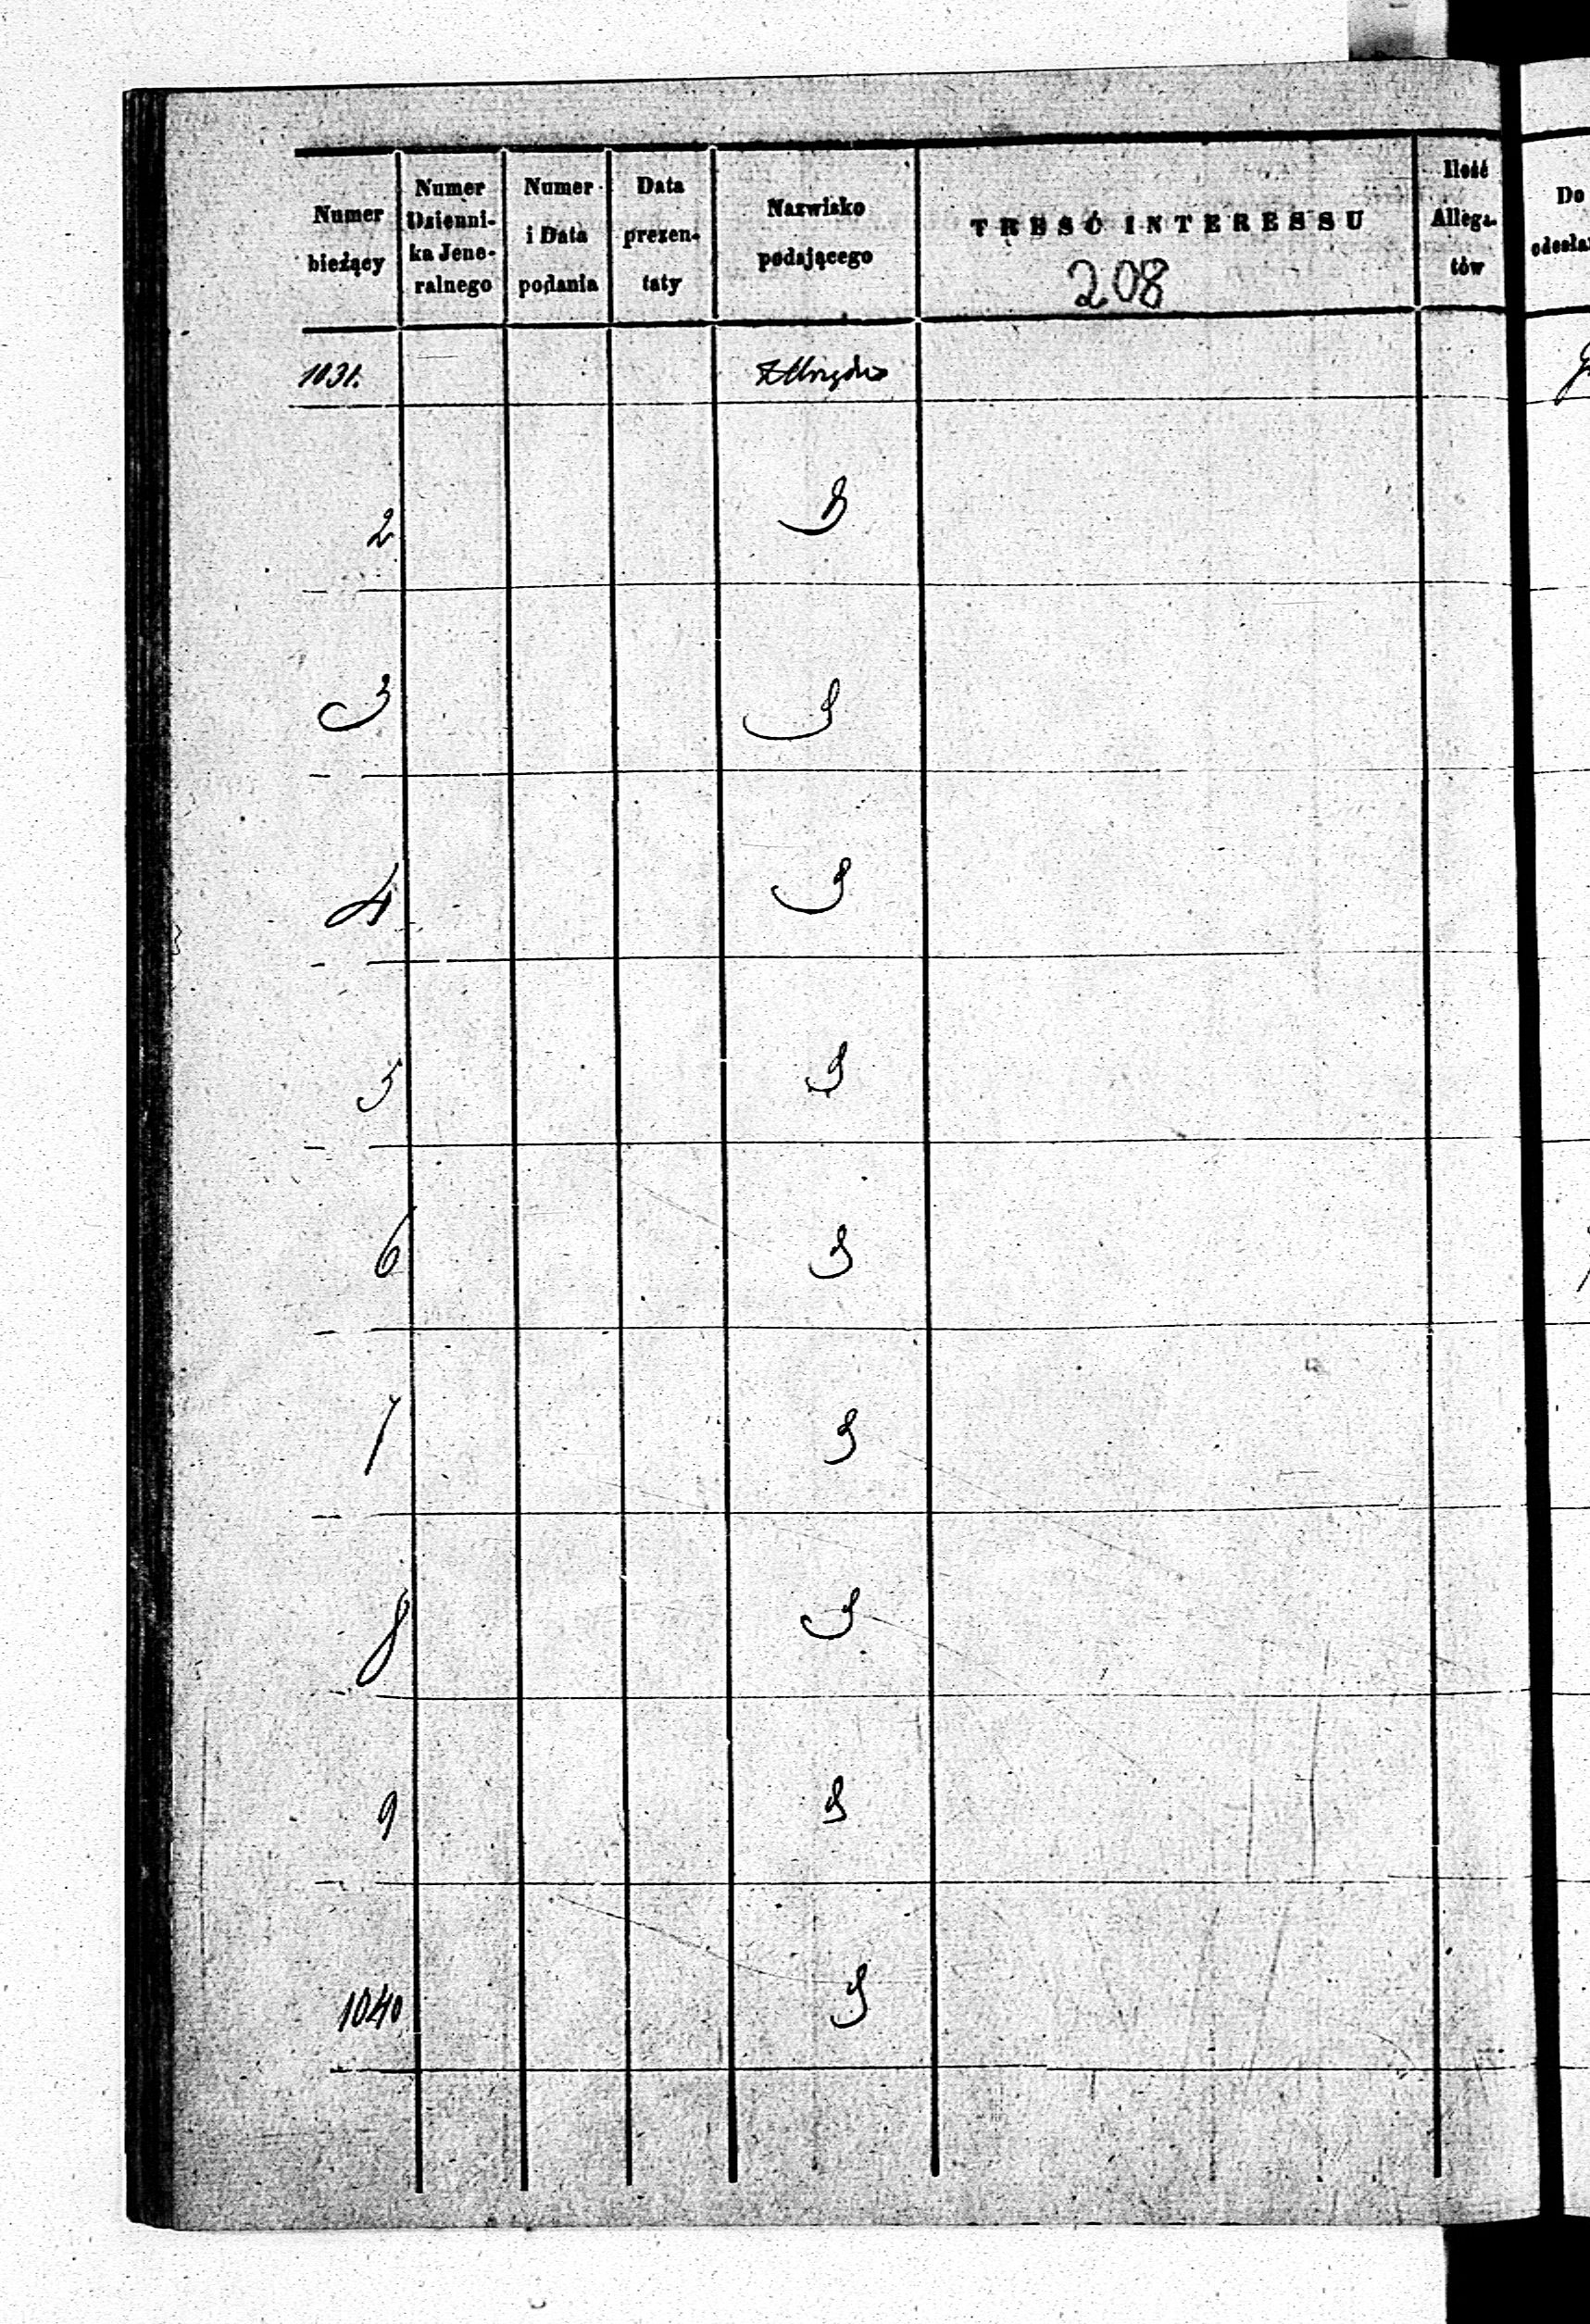 Numer bieżący
Numer Dzienni-ka Jene-ralnego
Numer i Data podania
Data prezen-taty
Nazwisko podającego
TREŚĆ INTERESSU
208
Ilość Allega-tów
Do
1031. Z Urzędu
2
3
4
5
6
7
8
9
1040